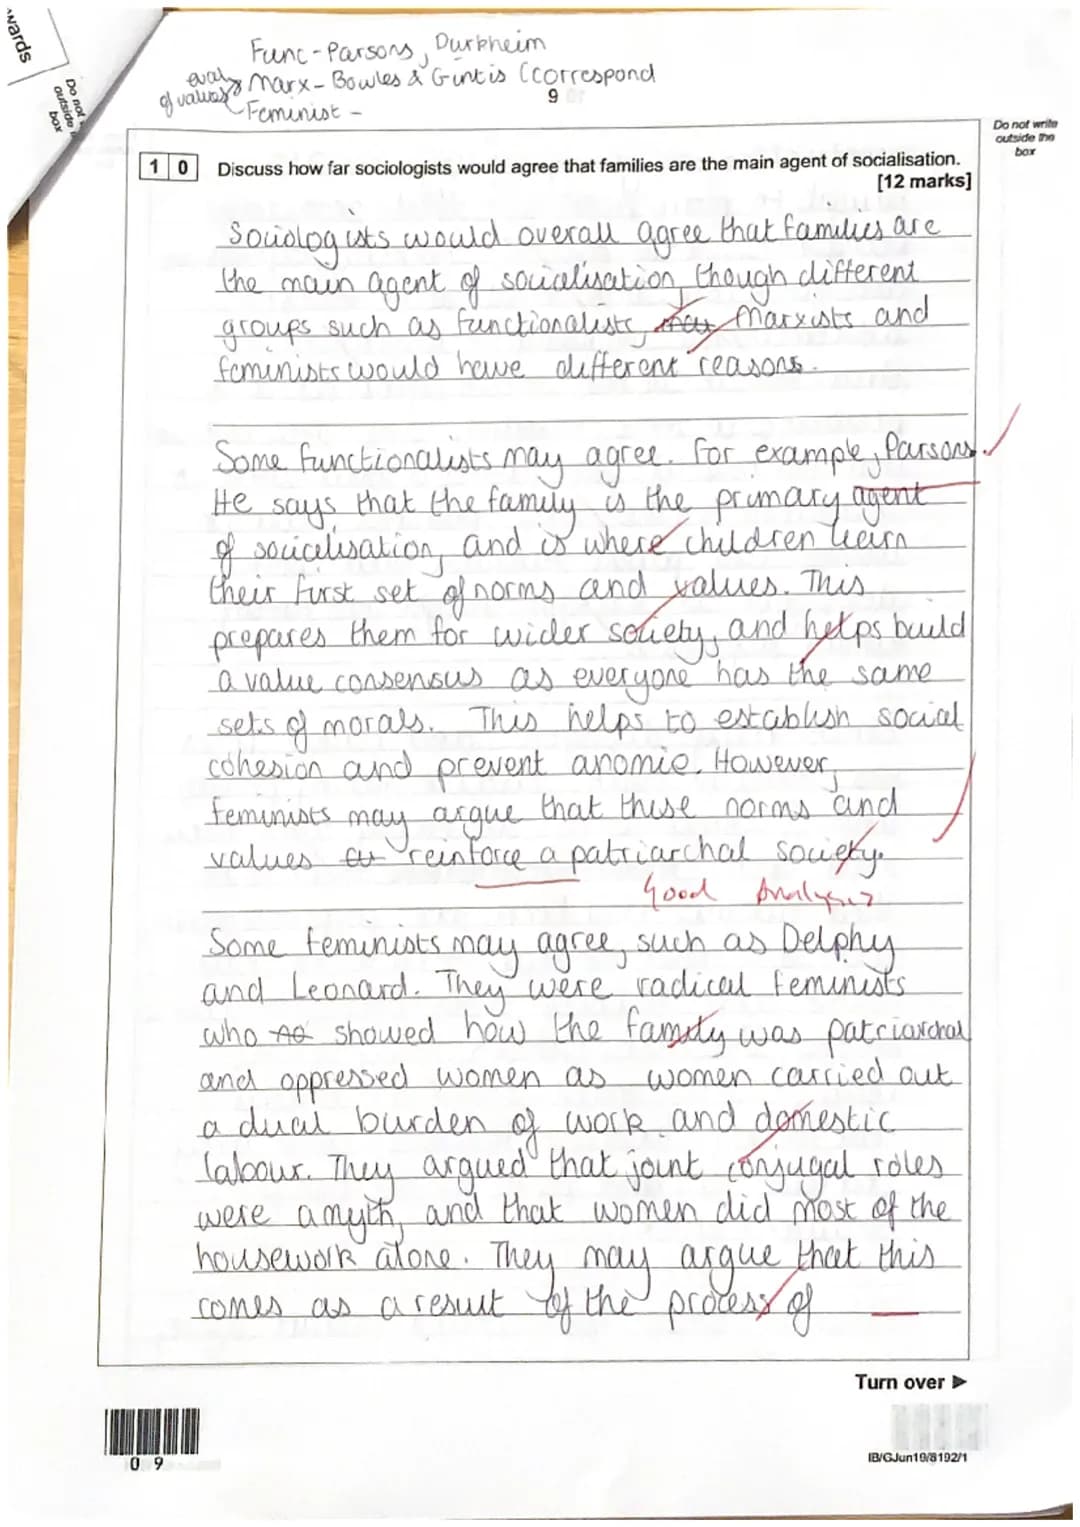 wards
Do not
outside
box
Func - Parsons, Durkheim
eval of values
Marx - Bowles & Gintis (correspond
Feminist -
9
Do not write
outside the
box
1 0 Discuss how far sociologists would agree that families are the main agent of socialisation.
[12 marks]
Sociologists would overall agree that families are
the main agent of socialisation, though different
groups such as functionalists, Marxists and
feminists would have different reasons.
Some functionalists may agree. For example, Parsons.
He says that the family is the primary agent
of socialisation, and is where children learn
their first set of norms and values. This
prepares them for wider society, and helps build
a value consensus as everyone has the same
sets of morals. This helps to establish social
cohesion and prevent anomie. However,
feminists may argue that these norms and
values reinforce a patriarchal society.
Good Analysis
Some feminists may agree, such as Delphy
and Leonard. They were radical feminists
who showed how the family was patriarchal
and oppressed women as women carried out
a dual burden of work and domestic
labour. They argued that joint conjugal roles
were a myth, and that women did most of the
housework alone. They may argue that this
comes as a result of the process of
Turn over ►
0 9
IB/G/Jun19/8192/1